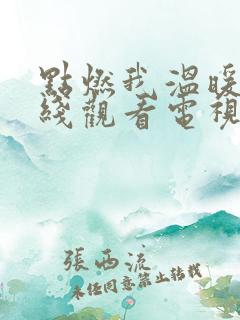 點燃我溫暖
綫觀看電視
張西流
未任同意禁止转载